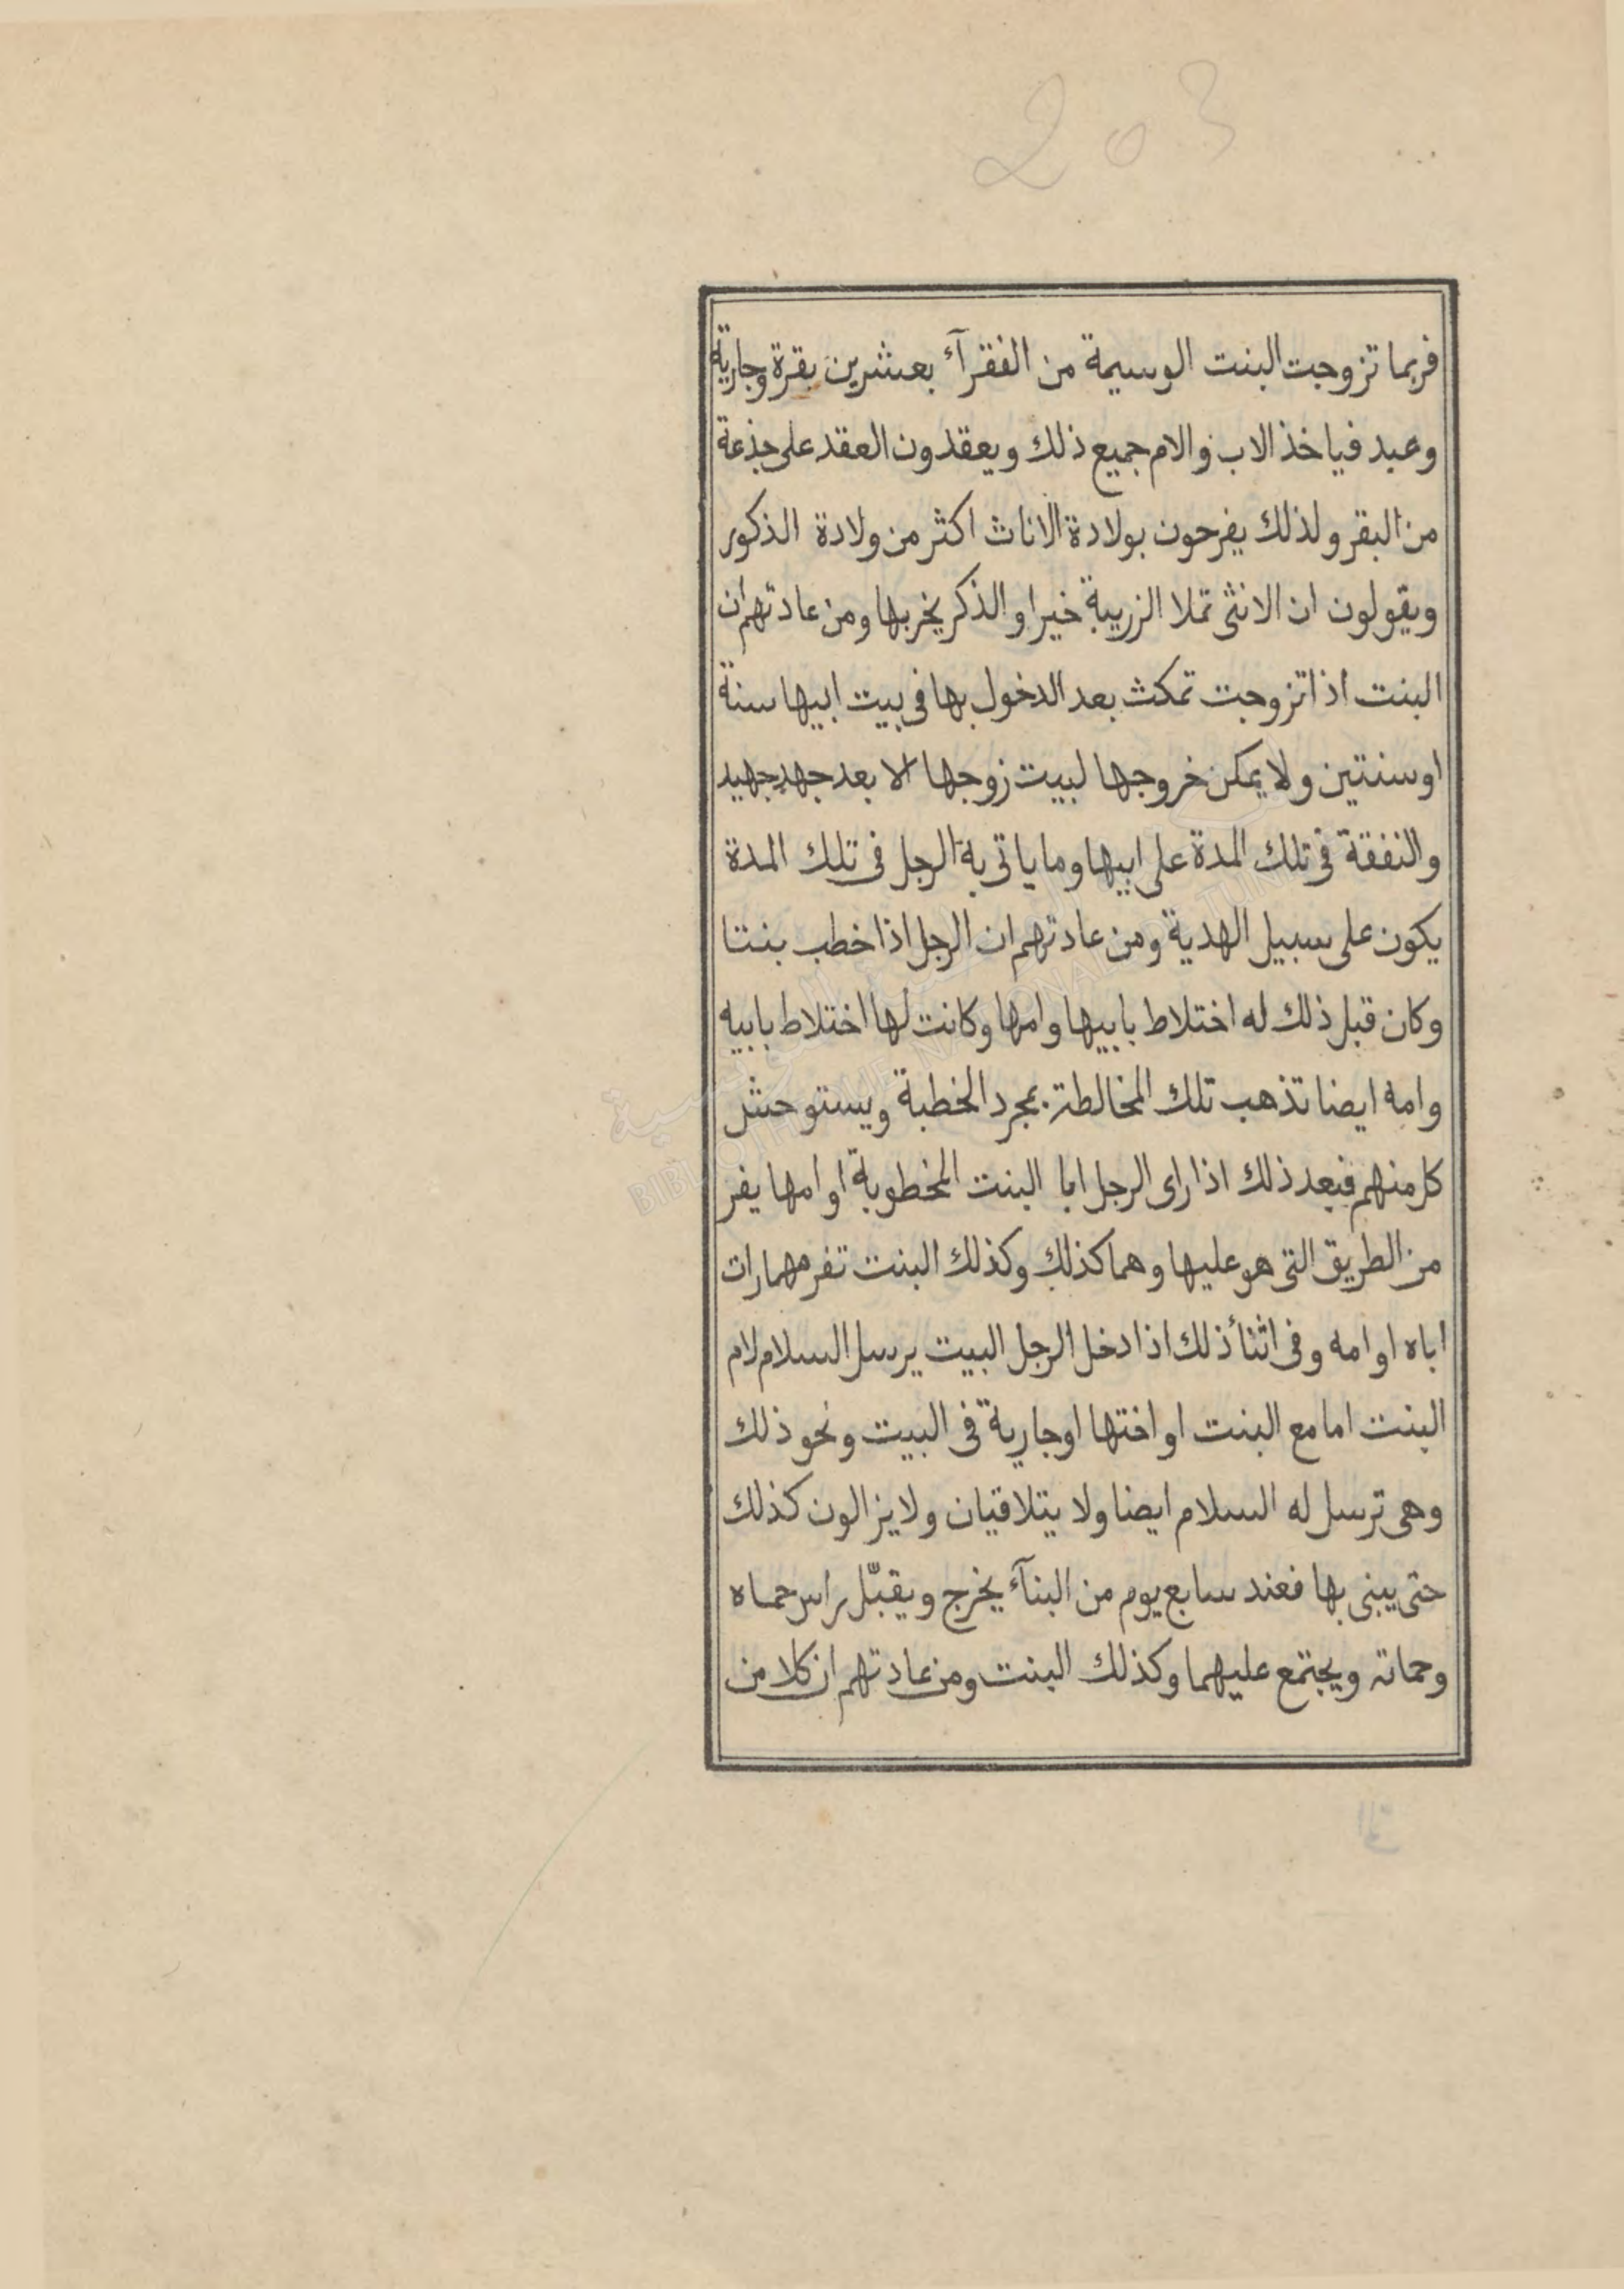 203
فربما تزوجت البنت الوسيمة من الفقرآء بعشرين بقرة وجارية
وعبد فياخذ الاب والام جميع ذلك ويعقدون العقد على جذعة
من البقر ولذلك يفرحون بولادة الاناث اكثر من ولادة الذكور
ويقولون ان الانثى تملا الزريبة خيرا والذكر يخربها ومن عادتهم ان
البنت اذا تزوجت تمكث بعد الدخول بها فى بيت ابيها سنة
او سنتين ولا يمكن خروجها لبيت زوجها الا بعد جهد جهيد
والنفقة فى تلك المدة على ابيها وما ياتى به الرجل فى تلك المدة
يكون على سبيل الهدية ومن عادتهم ان الرجل اذا خطب بنتا
وكان قبل ذلك له اختلاط بابيها وامها وكانت لها اختلاط بابيه
وامه ايضا تذهب تلك المخالطة بمجرد الخطبة ويستوحش
كل منهم فبعد ذلك اذا راى الرجل ابا البنت المخطوبة او امها يفر
من الطريق التى هو عليها وهما كذلك وكذلك البنت تفر مهما رات
اباه او امه وفى اثنأ ذلك اذا دخل الرجل البيت يرسل السلام لام
البنت اما مع البنت او اختها او جارية فى البيت ونحو ذلك
وهى ترسل له السلام ايضا ولا يتلاقيان ولا يزالون كذلك
حتى يبنى بها فعند سابع يوم من البنآء يخرج ويقبّل راس حماه
وحماته ويجتمع عليهما وكذلك البنت ومن عادتهم ان كلا من